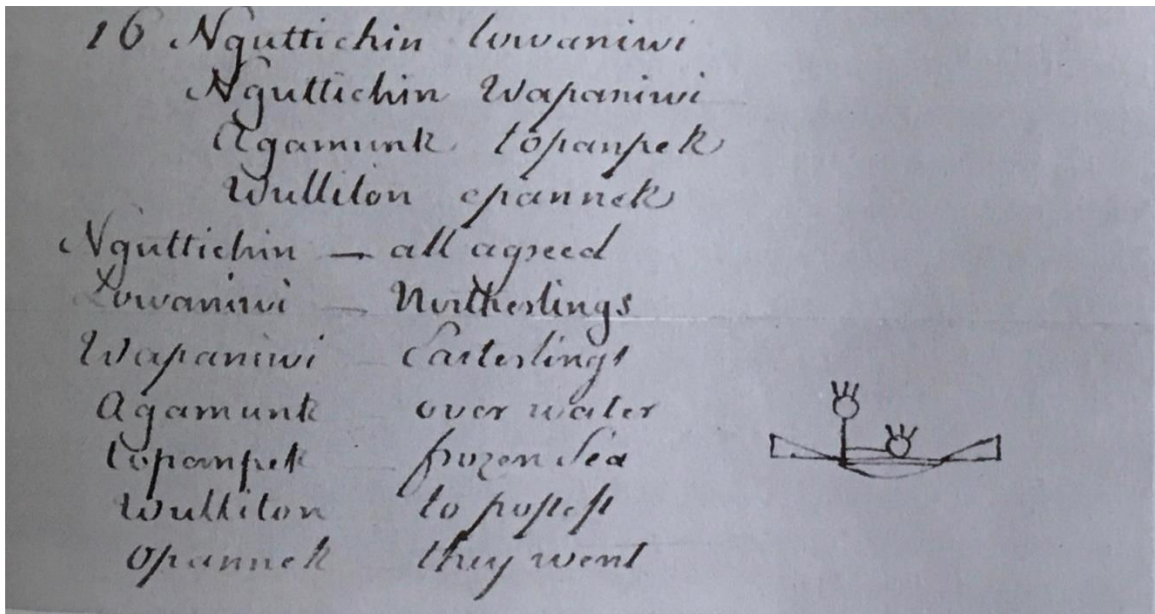 16 Nguttichin lowaniwi
Nguttichin Wapaniwi
Agamunk topanpek
Wulliton epannek
Nguttichin — all agreed
Lowaniwi — Northerlings
Wapaniwi — Easterlings
Agamunk over water
topanpek frozen Sea
Wulliton to poſseſs
Opannek they went